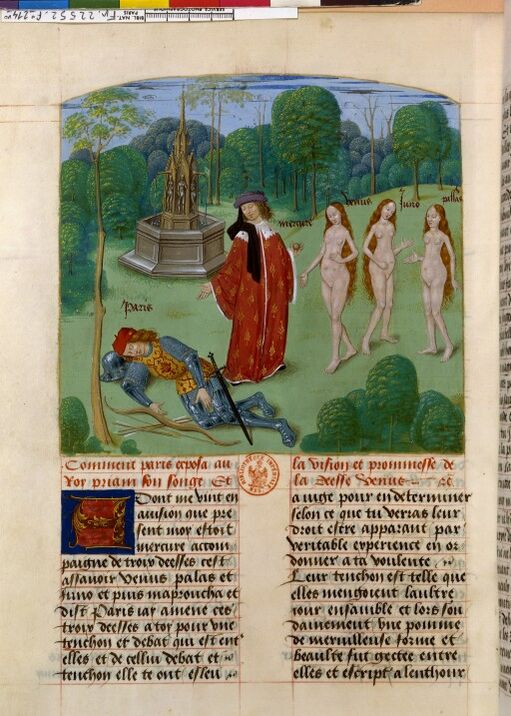 BIBL. NAT.
PARIS
SERVICE PHOTOGRAPHIQUE
mercure
Venus
Juno
pallas
Paris
Comment paris exposa au
Roy priam son songe Et
Dont me vint en
auision que pre
sent moy estoit
mercure acom
paigne de troys deesses cest
assauoir Venus palas et
Juno et puis maproucha et
dist Paris iay amene ces
troys deesses a toy pour vne
tenchon et debat qui est ent
elles et de cellui debat et
tenchon elle te ont esleu
la vision et prommesse de
la deesse venus
a iuge pour en determiner
selon ce que tu verras leur
droit estre apparant par
veritable experience en or
donner a ta voulente
Leur tenchon est telle que
elles mengoient laultre
iour ensamble et lors sou
dainement vne pomme
de merueilleuse forme et
beaulte fut gectee entre
elles et escript alenthour